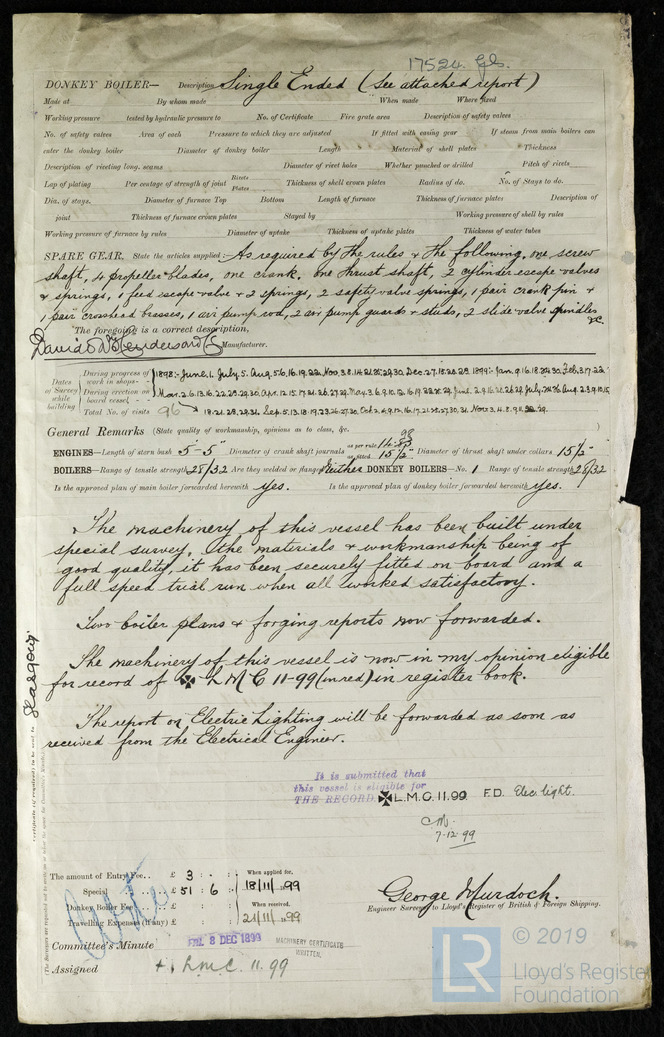 17524 Gls.
DONKEY BOILER— Description Single Ended (See attached report)
Made at By whom made When made Where fixed
Working pressure tested by hydraulic pressure to No. of Certificate Fire grate area Description of safety valves
No. of safety valves Area of each Pressure to which they are adjusted If fitted with easing gear If steam from main boilers can
enter the donkey boiler Diameter of donkey boiler Length Material of shell plates Thickness
Description of riveting long. seams Diameter of rivet holes Whether punched or drilled Pitch of rivets
Lap of plating Per centage of strength of joint Rivets Plates Thickness of shell crown plates Radius of do. No. of Stays to do.
Dia. of stays. Diameter of furnace Top Bottom Length of furnace Thickness of furnace plates Description of
joint Thickness of furnace crown plates Stayed by Working pressure of shell by rules
Working pressure of furnace by rules Diameter of uptake Thickness of uptake plates Thickness of water tubes
SPARE GEAR. State the articles supplied:— As required by the rules & the following. one screw
shaft, 4 propeller blades, one crank. one thrust shaft, 2 cylinder escape valves
& springs, 1 feed escape valve & 2 springs, 2 safety valve springs, 1 pair crank pin &
1 pair crosshead brasses, 1 air pump rod, 2 air pump guards & studs, 2 slide valve spindles &c.
The foregoing is a correct description,
David & W. Henderson & Co Manufacturer.
Dates of Survey while building
During progress of work in shops -
During erection on board vessel -
Total No. of visits 96
1898:- June. 1. July 5. Aug. 5. 6. 16. 19. 22. Nov. 3. 8. 14. 21. 25. 29. 30 Dec. 27. 18. 28. 28. 1899:- Jan. 9. 16. 18. 24. 30. Feb. 3. 17. 22.
General Remarks (State quality of workmanship, opinions as to class, &c.
ENGINES—Length of stern bush 5'-5" Diameter of crank shaft journals as per rule 14.98 as fitted 15 1/2" Diameter of thrust shaft under collars 15 1/2"
BOILERS—Range of tensile strength 28/32 Are they welded or flanged Neither DONKEY BOILERS—No. 1 Range of tensile strength 28/32
Is the approved plan of main boiler forwarded herewith yes. Is the approved plan of donkey boiler forwarded herewith yes.
The machinery of this vessel has been built under
special survey, the materials & workmanship being of
good quality, it has been securely fitted on board and a
full speed trial run when all worked satisfactory.
Two boiler plans & forging reports now forwarded.
The machinery of this vessel is now in my opinion eligible
for record of ✠ LMC 11-99 (in red) in register book.
The report on Electric Lighting will be forwarded as soon as
received from the Electrical Engineer.
Glasgow.
It is submitted that
this vessel is eligible for
THE RECORD. ✠ L.M.C. 11.99 F.D. Elec. light.
7-12-99
The amount of Entry Fee.. £ 3 : - : When applied for,
Special £ 51 : 6 : 18/11/1899
Donkey Boiler Fee £ : : When received,
Travelling Expenses (if any) £ : : 21/11/1899
George Murdoch.
Engineer Surveyor to Lloyd's Register of British & Foreign Shipping.
Committee's Minute FRI. 8 DEC 1899 MACHINERY CERTIFICATE WRITTEN.
Assigned + L.M.C. 11.99
LR © 2019
Lloyd's Register
Foundation